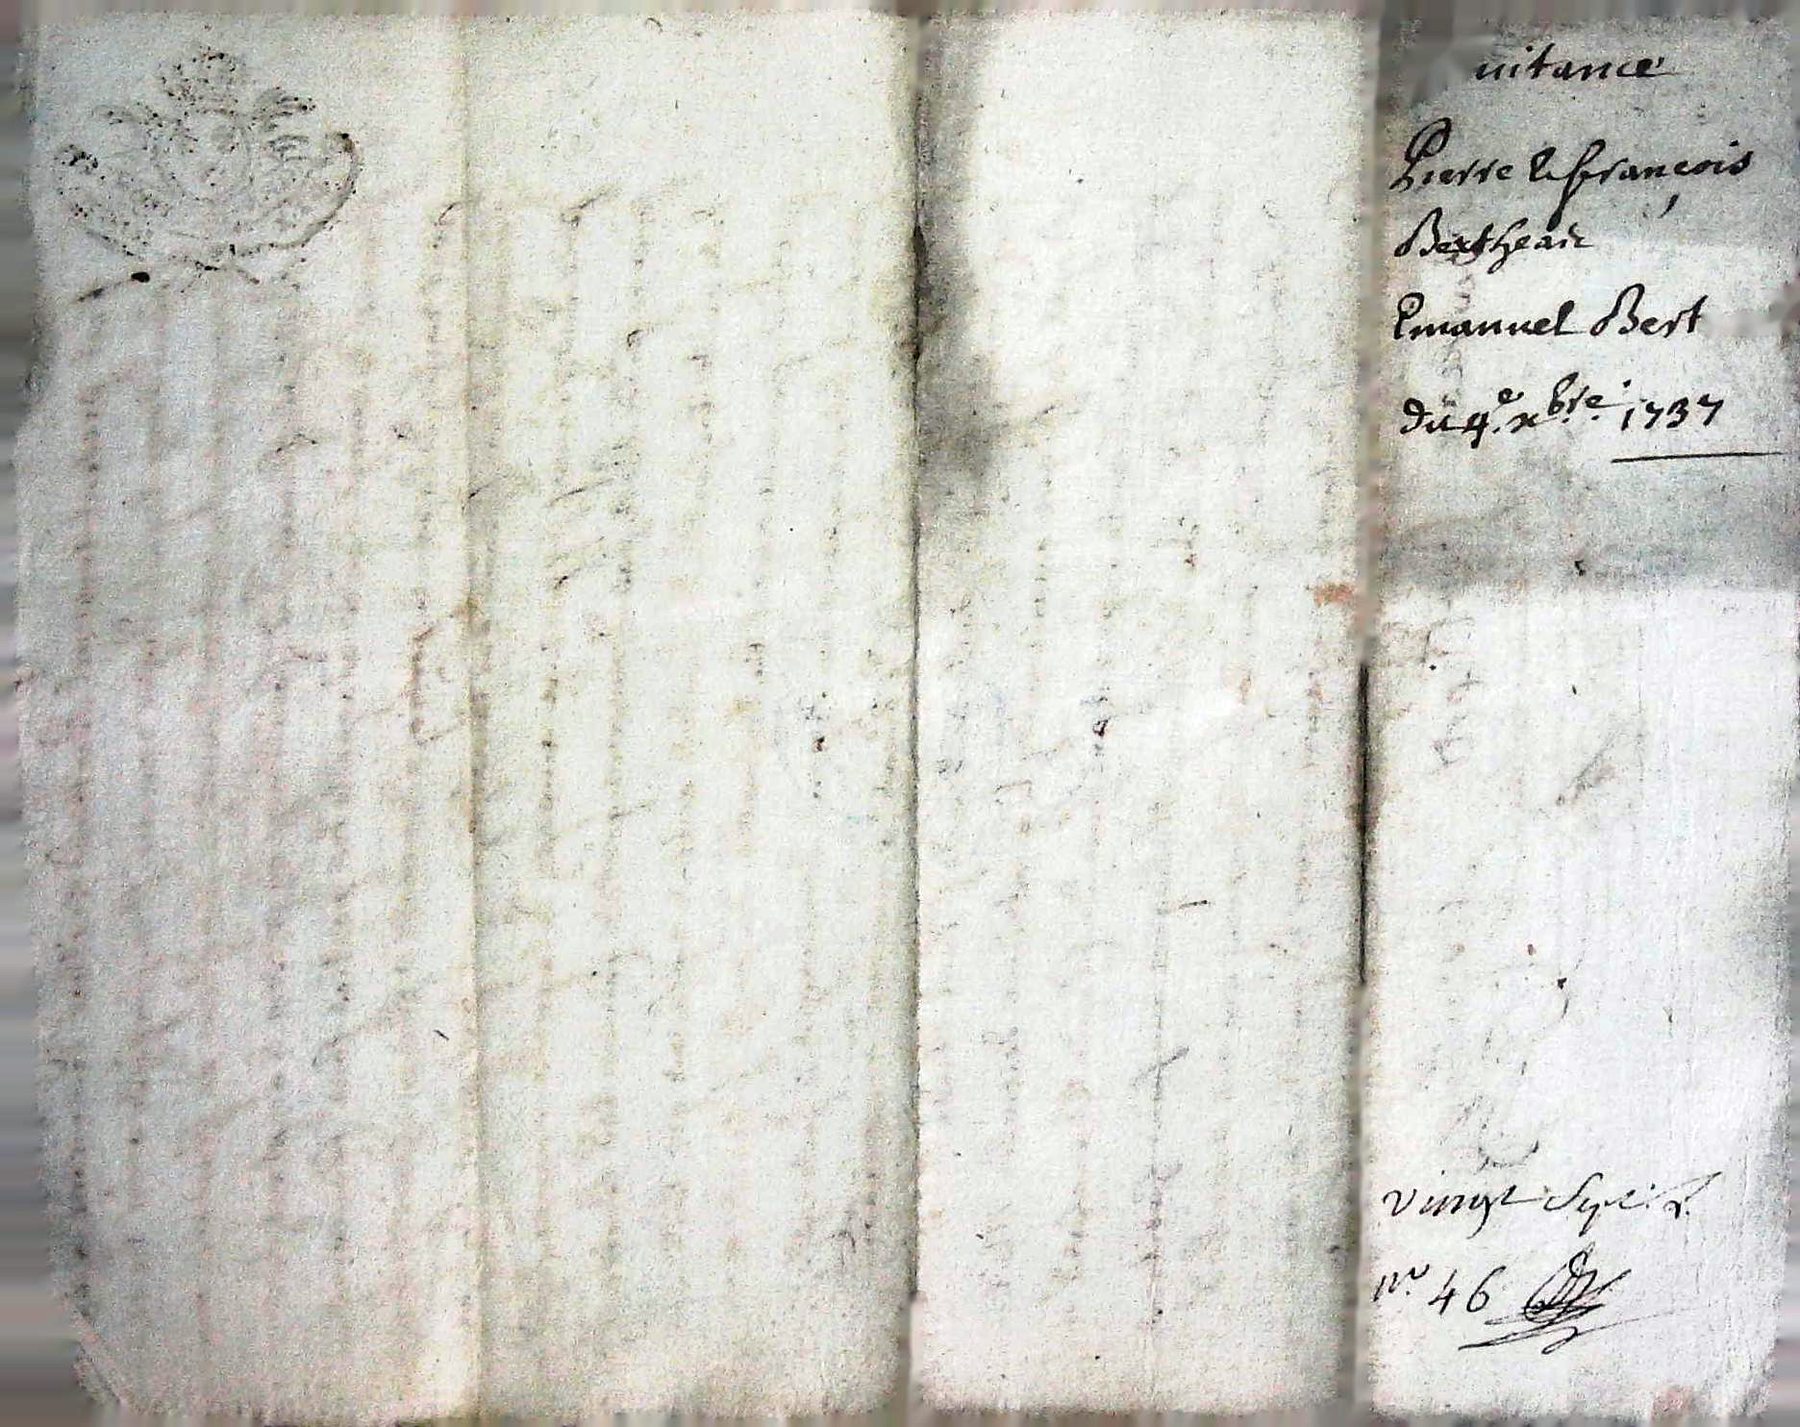 uitance
Pierre & françois
Berthean
Emanuel Bert
du 4.e xbre. 1737
vingt Sept. L.
no. 46